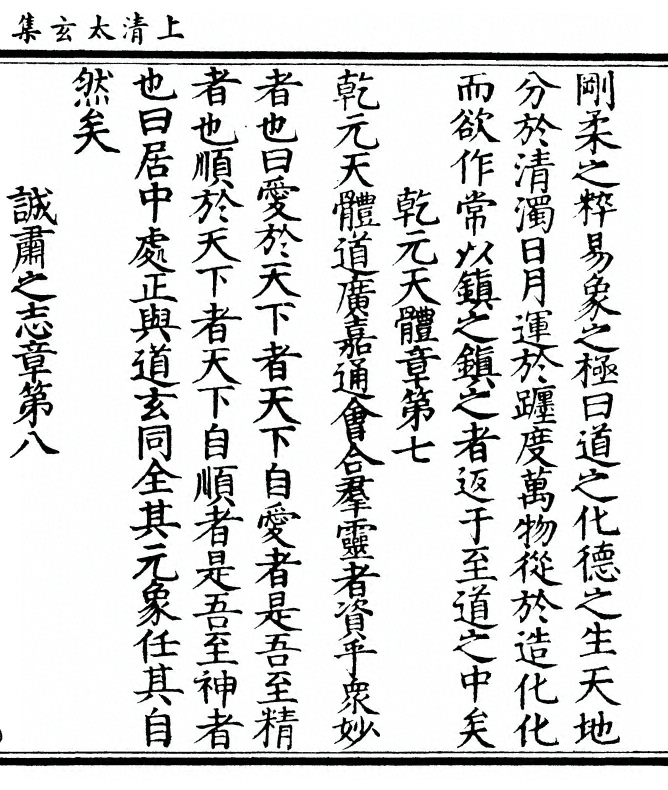 上清太玄集
剛柔之粹易象之極曰道之化德之生天地
分於清濁日月運於躔度萬物從於造化化
而欲作常以鎮之鎮之者返于至道之中矣
乾元天體章第七
乾元天體道廣嘉通會合羣靈者資乎衆妙
者也曰愛於天下者天下自愛者是吾至精
者也順於天下者天下自順者是吾至神者
也曰居中處正與道玄同全其元象任其自
然矣
誠肅之志章第八